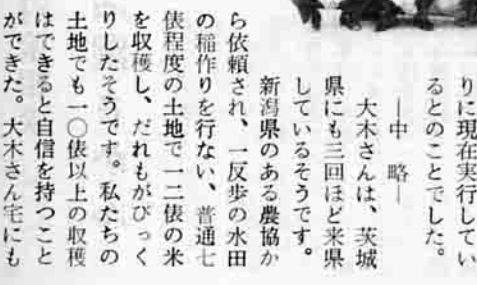 りに現在実行してい
るとのことでした。
―中　略―
大木さんは、茨城
県にも三回ほど来県
しているそうです。
新潟県のある農協か
ら依頼され、一反歩の水田
の稲作りを行ない、普通七
俵程度の土地で一二俵の米
を収穫し、だれもがびっく
りしたそうです。私たちの
土地でも一〇俵以上の収穫
はできると自信を持つこと
ができた。大木さん宅にも